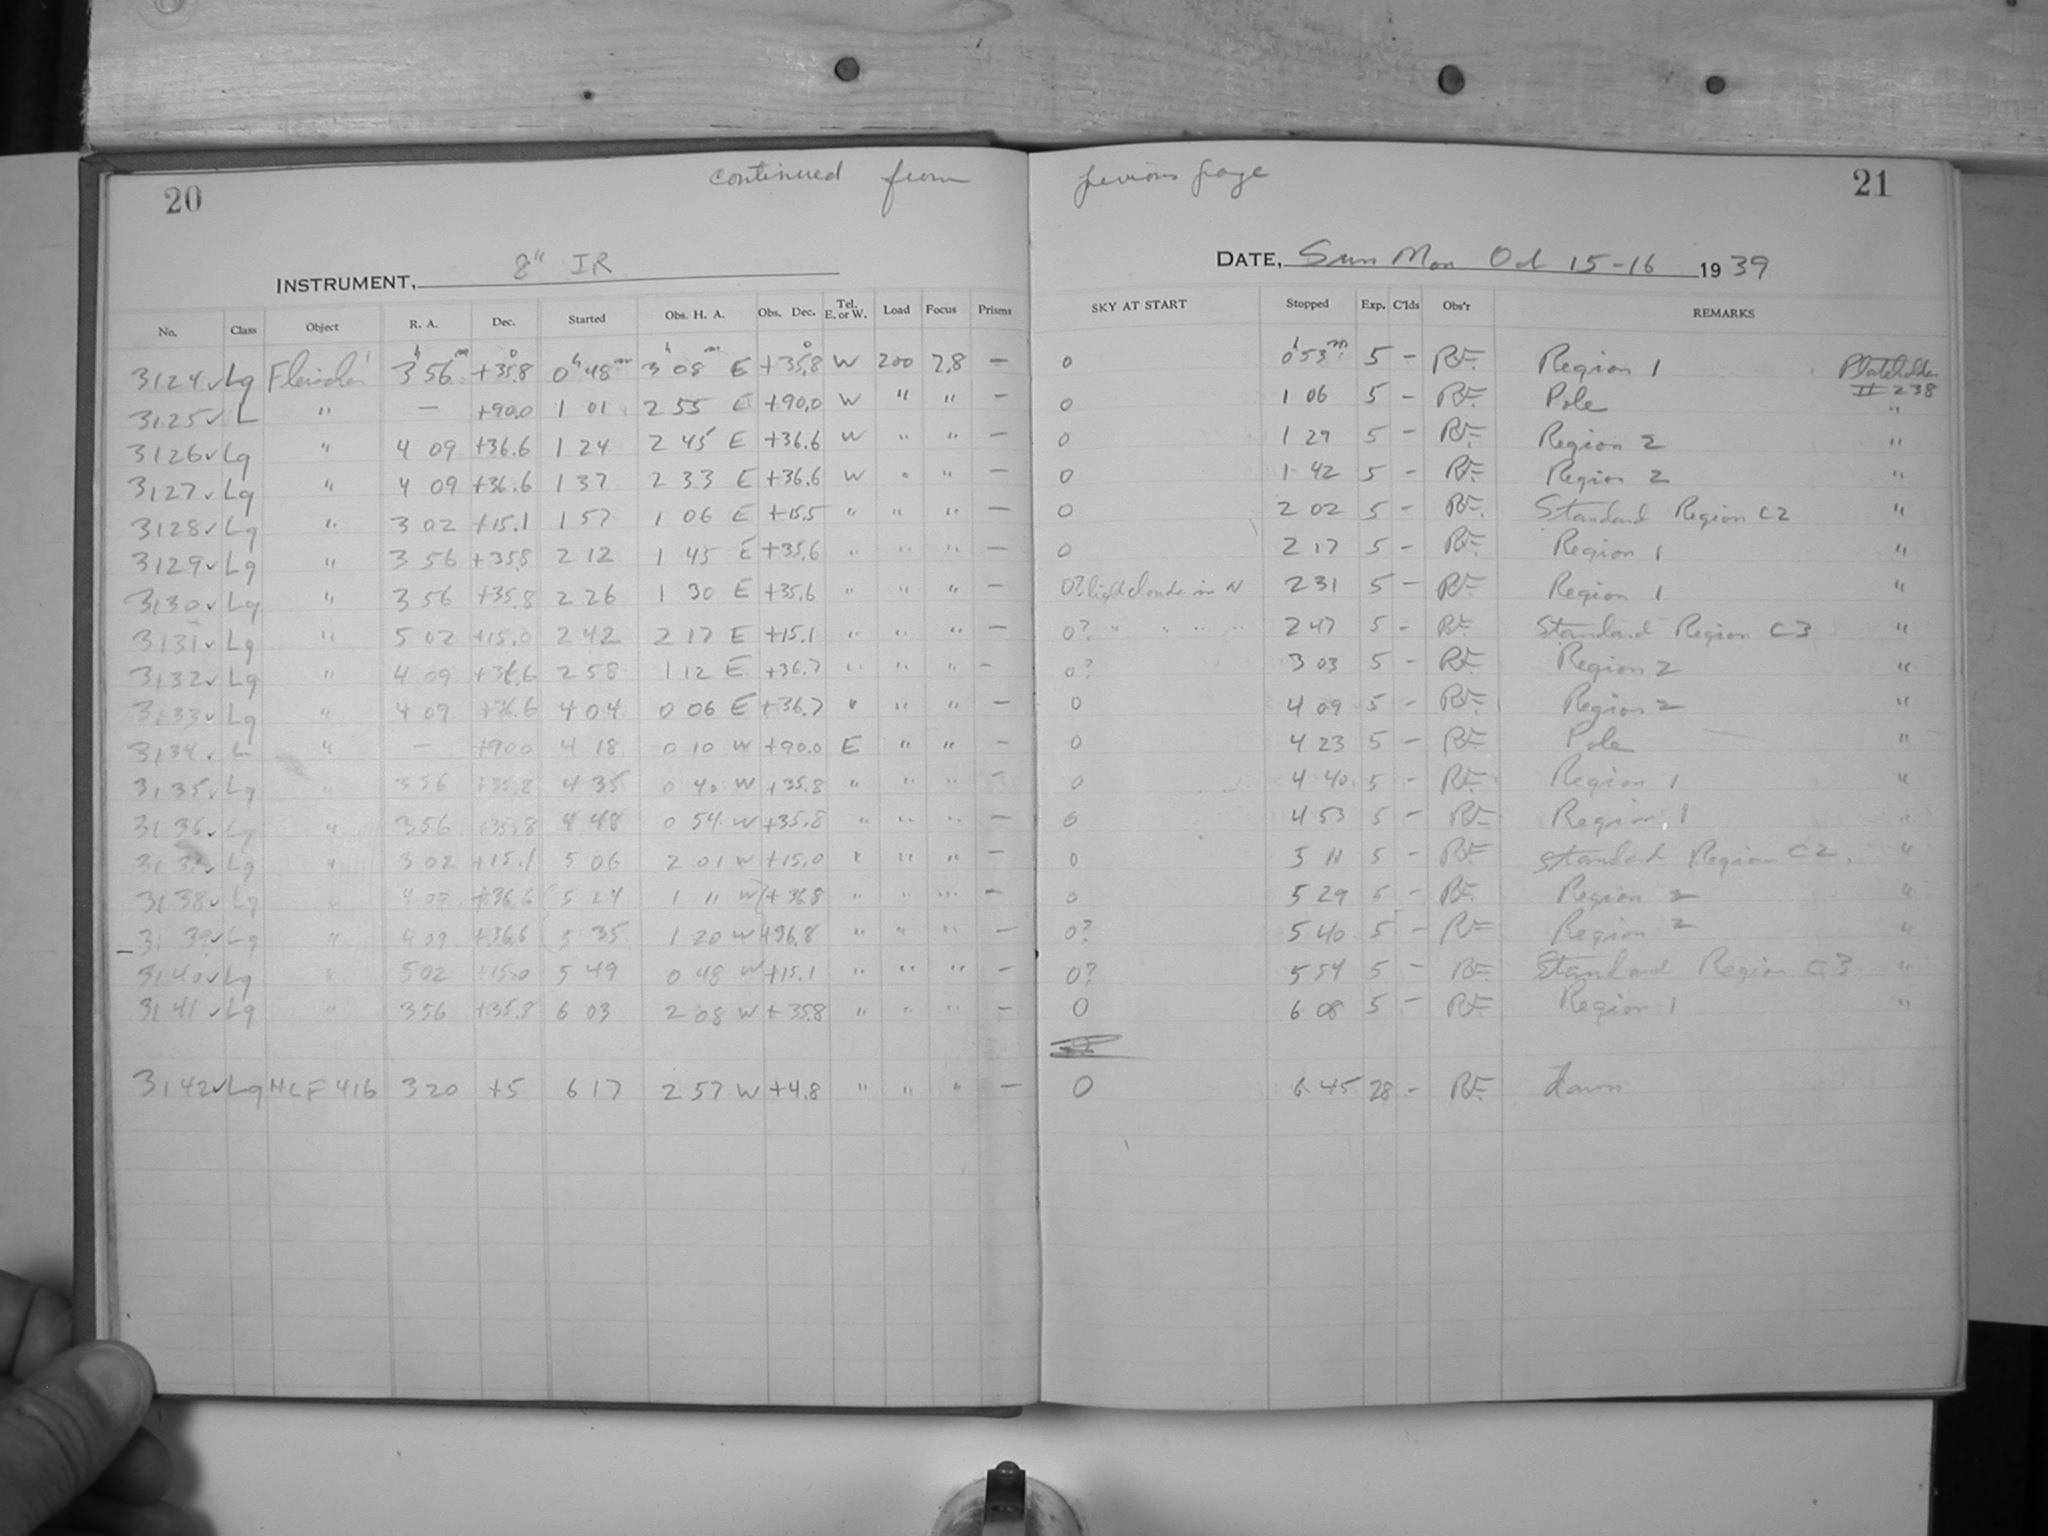 continued from previous page
20 21
INSTRUMENT, 8" IR DATE, Sun Mon Oct 15-16 1939
No. Class Object R. A. Dec. Started Obs. H. A. Obs. Dec. Tel. E. or W. Load Focus Prisms SKY AT START Stopped Exp. C'lds Obs'r REMARKS
3124 ✓ Lg 3h 56m +35.8° 0h 48m 3h 08m E +35.8° W 200 7.8 — 0 0h 53m 5 — Region 1 Plateholder II 238
3125 ✓ L " — +90.0 1 01 2 55 E +90.0 W " " — 0 1 06 5 — Pole "
3126 ✓ Lg " 4 09 +36.6 1 24 2 45 E +36.6 W " " — 0 1 29 5 — Region 2 "
3127 ✓ Lg " 4 09 +36.6 1 37 2 33 E +36.6 W " " — 0 1 42 5 — Region 2 "
3128 ✓ Lg " 3 02 +15.1 1 57 1 06 E +15.5 " " " — 0 2 02 5 — Standard Region C2 "
3129 ✓ Lg " 3 56 +35.8 2 12 1 45 E +35.6 " " " — 0 2 17 5 — Region 1 "
3130 ✓ Lg " 3 56 +35.8 2 26 1 30 E +35.6 " " " — 0? light clouds in N 2 31 5 — Region 1 "
3131 ✓ Lg " 5 02 +15.0 2 42 2 17 E +15.1 " " " — 0? " " " " 2 47 5 — Standard Region C3 "
3132 ✓ Lg " 4 09 +36.6 2 58 1 12 E +36.7 " " " — 0? 3 03 5 — Region 2 "
3133 ✓ Lg " 4 09 +36.6 4 04 0 06 E +36.7 " " " — 0 4 09 5 — Region 2 "
3134 ✓ L " — +90.0 4 18 0 10 W +90.0 E " " — 0 4 23 5 — Pole "
3135 ✓ Lg " 3 56 +35.8 4 35 0 40 W +35.8 " " " — 0 4 40 5 — Region 1 "
3136 ✓ Lg " 3 56 +35.8 4 48 0 54 W +35.8 " " " — 0 4 53 5 — Region 1 "
3137 ✓ Lg " 3 02 +15.1 5 06 2 01 W +15.0 " " " — 0 5 11 5 — Standard Region C2 "
3138 ✓ Lg " 4 09 +36.6 5 24 1 11 W +36.8 " " " — 0 5 29 5 — Region 2 "
3139 ✓ Lg " 4 09 +36.6 5 35 1 20 W +36.8 " " " — 0? 5 40 5 — Region 2 "
3140 ✓ Lg " 5 02 +15.0 5 49 0 48 W +15.1 " " " — 0? 5 54 5 — Standard Region C3 "
3141 ✓ Lg " 3 56 +35.8 6 03 2 08 W +35.8 " " " — 0 6 08 5 — Region 1 "
3142 ✓ Lg HLF 416 3 20 +5 6 17 2 57 W +4.8 " " " — 0 6 45 28 — dawn